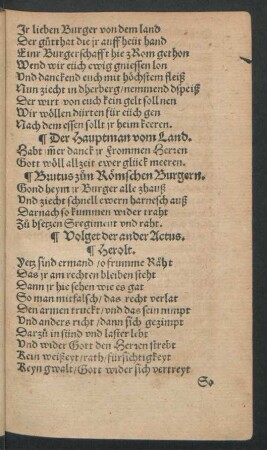 Jr lieben Burger von dem land
Der gůtthat die jr auff heüt hand
Einr Burgerschafft hie z Rom gethon
Wend wir eüch ewig gniessen lon
Und danckend euch mit höchstem fleiß
Nun ziecht in dherberg/nemmend dspeiß
Der wirt von euch kein gelt soll nen
Wir wöllen dürten für eüch gen
Nach dem essen sollt jr heim keeren.
¶ Der Hauptman vom Land.
Habt im̄er danck jr Frommen Herren
Gott wöll allzeit ewer glück meeren.
¶ Brutus zůn Römischen Burgern.
Gond heym jr Burger alle z hauß
Und ziecht schnell ewern harnesch auß
Darnach so kummen wider traht
Zů bsetzen Sregiment und raht.
¶ Volget der ander Actus.
¶ Herolt.
Yetz sind ermand/o frumme Räht
Das jr am rechten bleiben steht
Dann jr hie sehen wie es gat
So man mit falsch/das recht verlat
Den armen truckt/und das sein nimpt
Und anders richt/dann sich gezimpt
Darzů in sünd und laster lebt
Und wider Gott den Herren strebt
Kein weißeyt/rath/fürsichtigkeyt
Keyn gwalt/Gott wider sich vertreyt
So